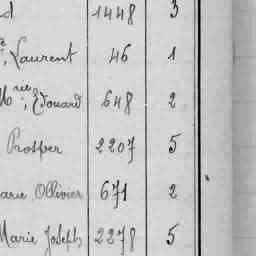 d 1448 3
e, Laurent 46 1
Mrie, Edouard 648 2
Prosper 2207 5
arie Ollivier 671 2
Marie Joseph 2278 5